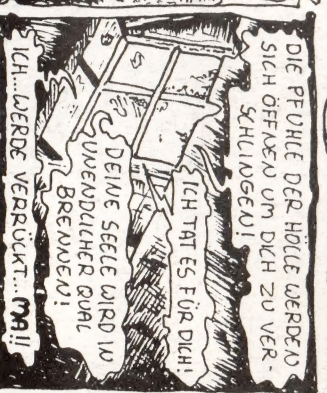 DIE PFUHLE DER HÖLLE WERDEN
SICH ÖFFNEN UM DICH ZU VER-
SCHLINGEN!
ICH TAT ES FÜR DICH!
DEINE SEELE WIRD IN
UNENDLICHER QUAL
BRENNEN!
ICH...WERDE VERRÜCKT...MA!!